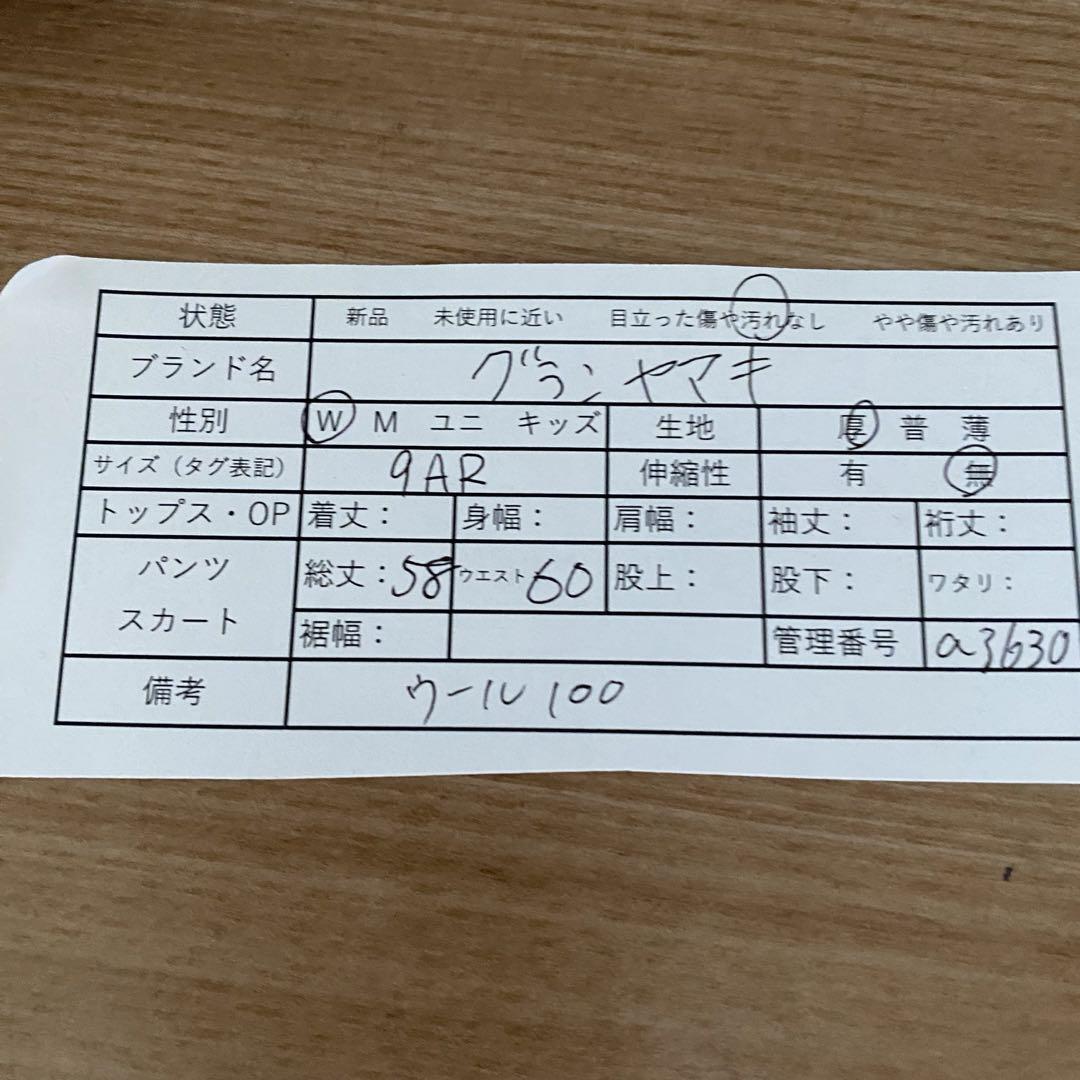 状態 新品 未使用に近い 目立った傷や汚れなし やや傷や汚れあり
ブランド名 グランヤマキ
性別 W M ユニ キッズ 生地 厚 普 薄
サイズ（タグ表記） 9AR 伸縮性 有 無
トップス・OP 着丈： 身幅： 肩幅： 袖丈： 裄丈：
パンツ 総丈：58 ウエスト60 股上： 股下： ワタリ：
スカート 裾幅： 管理番号 a3630
備考 ウール100